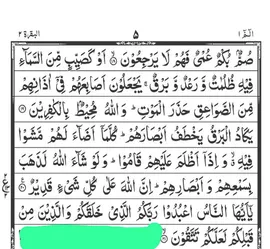 البقرة ٢ ٥ الٓمّٓ ١
صُمٌّۢ بُكْمٌ عُمْیٌ فَهُمْ لَا یَرْجِعُوْنَ ۙ۝ اَوْ كَصَیِّبٍ مِّنَ السَّمَآءِ
فِیْهِ ظُلُمٰتٌ وَّ رَعْدٌ وَّ بَرْقٌ ۚ یَجْعَلُوْنَ اَصَابِعَهُمْ فِیْۤ اٰذَانِهِمْ
مِّنَ الصَّوَاعِقِ حَذَرَ الْمَوْتِ ؕ وَ اللّٰهُ مُحِیْطٌۢ بِالْكٰفِرِیْنَ ۝
یَكَادُ الْبَرْقُ یَخْطَفُ اَبْصَارَهُمْ ؕ كُلَّمَاۤ اَضَآءَ لَهُمْ مَّشَوْا
فِیْهِ ۙۗ وَ اِذَاۤ اَظْلَمَ عَلَیْهِمْ قَامُوْا ؕ وَ لَوْ شَآءَ اللّٰهُ لَذَهَبَ
بِسَمْعِهِمْ وَ اَبْصَارِهِمْ ؕ اِنَّ اللّٰهَ عَلٰى كُلِّ شَیْءٍ قَدِیْرٌ ۝
یٰۤاَیُّهَا النَّاسُ اعْبُدُوْا رَبَّكُمُ الَّذِیْ خَلَقَكُمْ وَ الَّذِیْنَ مِنْ
قَبْلِكُمْ لَعَلَّكُمْ تَتَّقُوْنَ ۙ۝